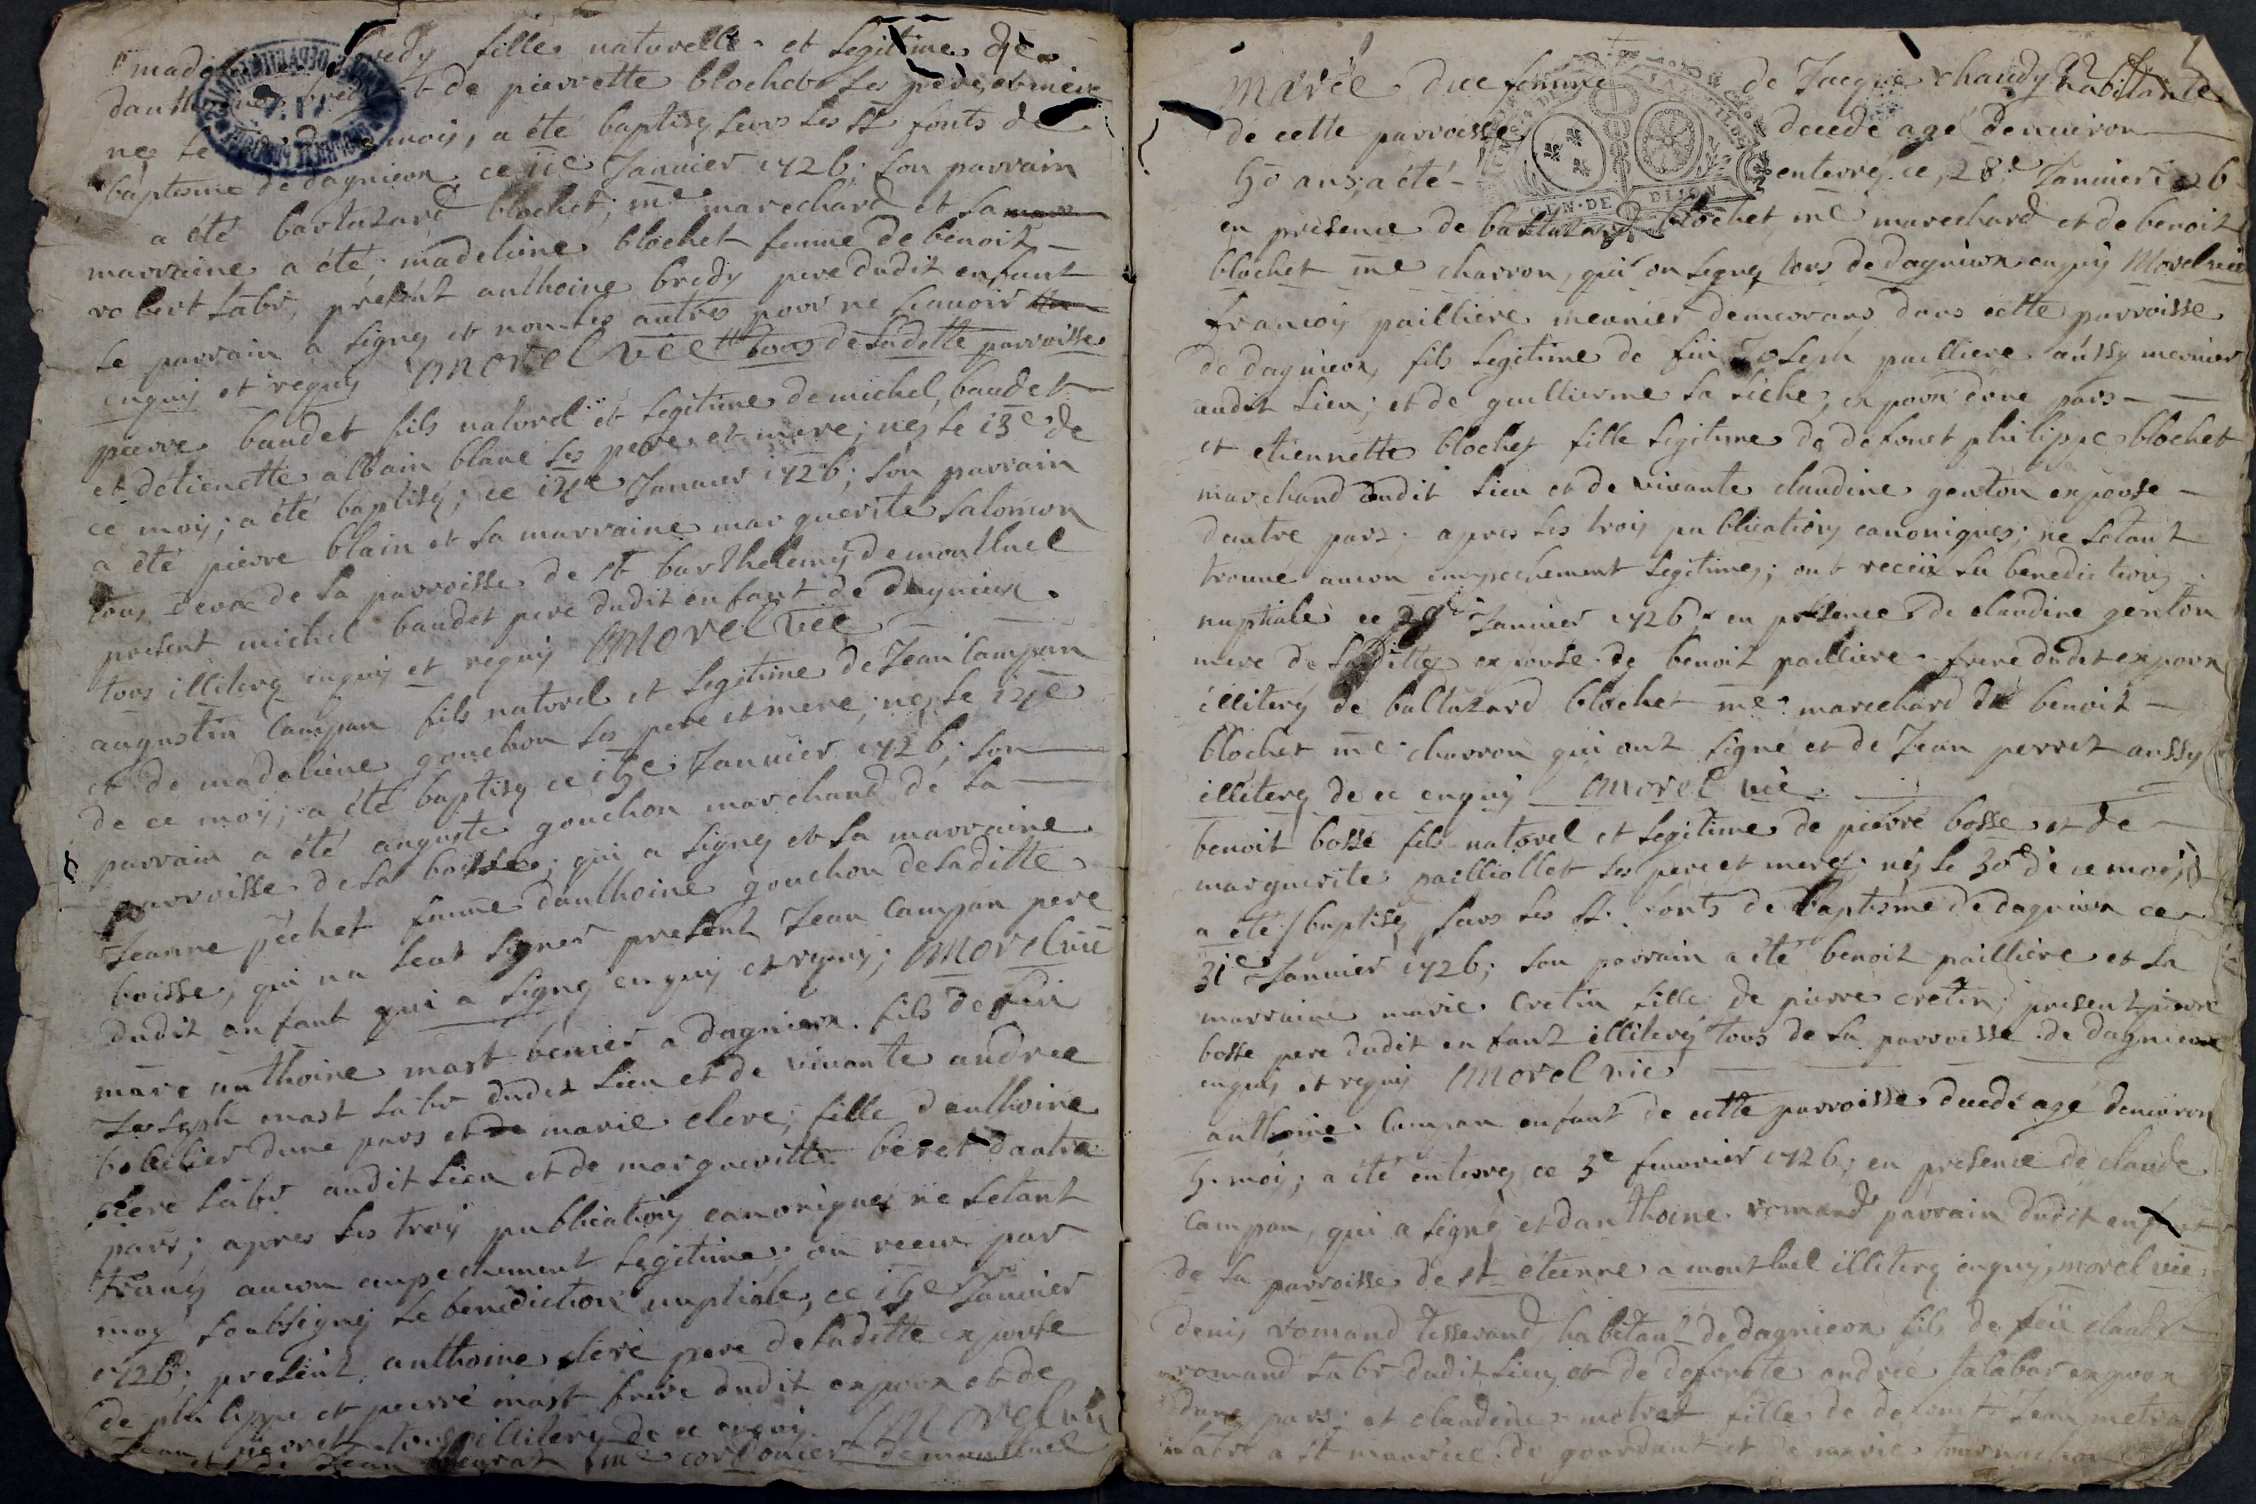 fille naturelle et legitime de
de pierrette blochet ses pere et mere
mois, a été baptisé surs les st fonts de
baptisme de dagnieux ce Januier 1726; son parrain
a été bartazard blochet; me marechard et sa
marraine a été; madeleine blochet femme de benoit
robert labr, présent anthoine bredy pere dudit enfant
le parrain a signé et non les autres pour ne scauoir
enquis et requis Morel vic tous de ladette parroisse
pierre baudet fils naturel et legitime de michel baudet
et détienette albain blanc ses pere et mere; nés le 13e de
ce mois; a été baptisé; ce 14e Januier 1726; son parrain
a été pierre blain et sa marraine marguerite salomon
tous deux de la parroisse de st barthelemy de montluel
present michel baudet pere dudit enfant de dagnieux.
tous illiterés enquis et requis Morel vic
augustin campan fils naturel et legitime de Jean campan
et de madeleine gouchon ses pere et mere; nés le 14e
de ce mois; a été baptisé ce 15e Januier 1726; son
parrain a été auguste gouchon marchand de la
parroisse de la boisse; qui a signé et sa marraine
Jeanne péchet femme danthoine gouchon de laditte
boisse, qui na scut signer present Jean campan pere
dudit enfant qui a signé enquis et requis; Morel vic
marc anthoine mast benier a dagnieux. fils de feu
Joseph mast labr dudit lieu et de viuante andree
dune pars et de marie clere; fille danthoine
clere labr audit lieu et de margueritte beret dautre
pars; apres les trois publications canoniques ne setant
trouué aucun empechement legitime; on receu par
moy soubsigné le benediction nuptiale, ce 15e Januier
1726; present. anthoine cleré pere de laditte expouse
de philippe et pierre mast frere dudit expoux et de
Jean pierret tous illiterés de ce enquis. Morel vic
et de Jean me cordonier de montluel
marie femme de Jacque chaudy habitante
de cette parroisse decede agé denuiron
50 ans; a été enterré ce, 28e Januier 1726
en presence de baltazard blochet me marechard et de benoit
blochet me charron, qui on signé tous de dagnieux enquis Morel vic
francois pailliere meunier demeurans dans cette parroisse
de dagnieux, fils legitime de feü Joseph pailliere aussy meunier
audit lieu; et de guillierme la siche, expoux dune pars
et etiennette blochet fille legitime de defunct philippe blochet
marchand audit lieu et de viuante claudine genton expouse
dautre pars. apres les trois publications canoniques; ne setant
trouué aucun empechement legitime; ont receü la benediction
nuptiale ce 28e Januier 1726. en présence de claudine genton
mere de laditte expouse. de benoit pailliere frere dudit expoux
illiterés de baltazard blochet me marechard de benoit
blochet me charron qui ont signé et de Jean perret aussy
illiterés de ce enquis Morel vic
benoit bosse fils naturel et legitime de pierre bosse et de
marguerite pailliollet ses pere et mere; nés le 30e de ce mois
a été baptisé surs les st. fonts de baptisme de dagnieux ce
31e Januier 1726; son parrain a été benoit pailliere et la
marraine marie cretin fille de pierre cretin; present pierre
bosse pere dudit enfant illiteré tous de la parroisse de dagnieux
enquis et requis Morel vic
anthoine campan enfant de cette parroisse decedé agé denuiron
5. mois; a été enterré ce 3e feuurier 1726; en présence de claude
campan, qui a signé et danthoine romand parrain dudit enfant
de la parroisse de st étienne a montluel illiteré enquis, Morel vic
denis romand tisserand, habitant de dagnieux fils de feü claude
romand labr dudit lieu, et de defunte andrée expoux
dune pars; et claudine metrat fille de defunct Jean metrat
labr a st maurice de gourdant et de marie